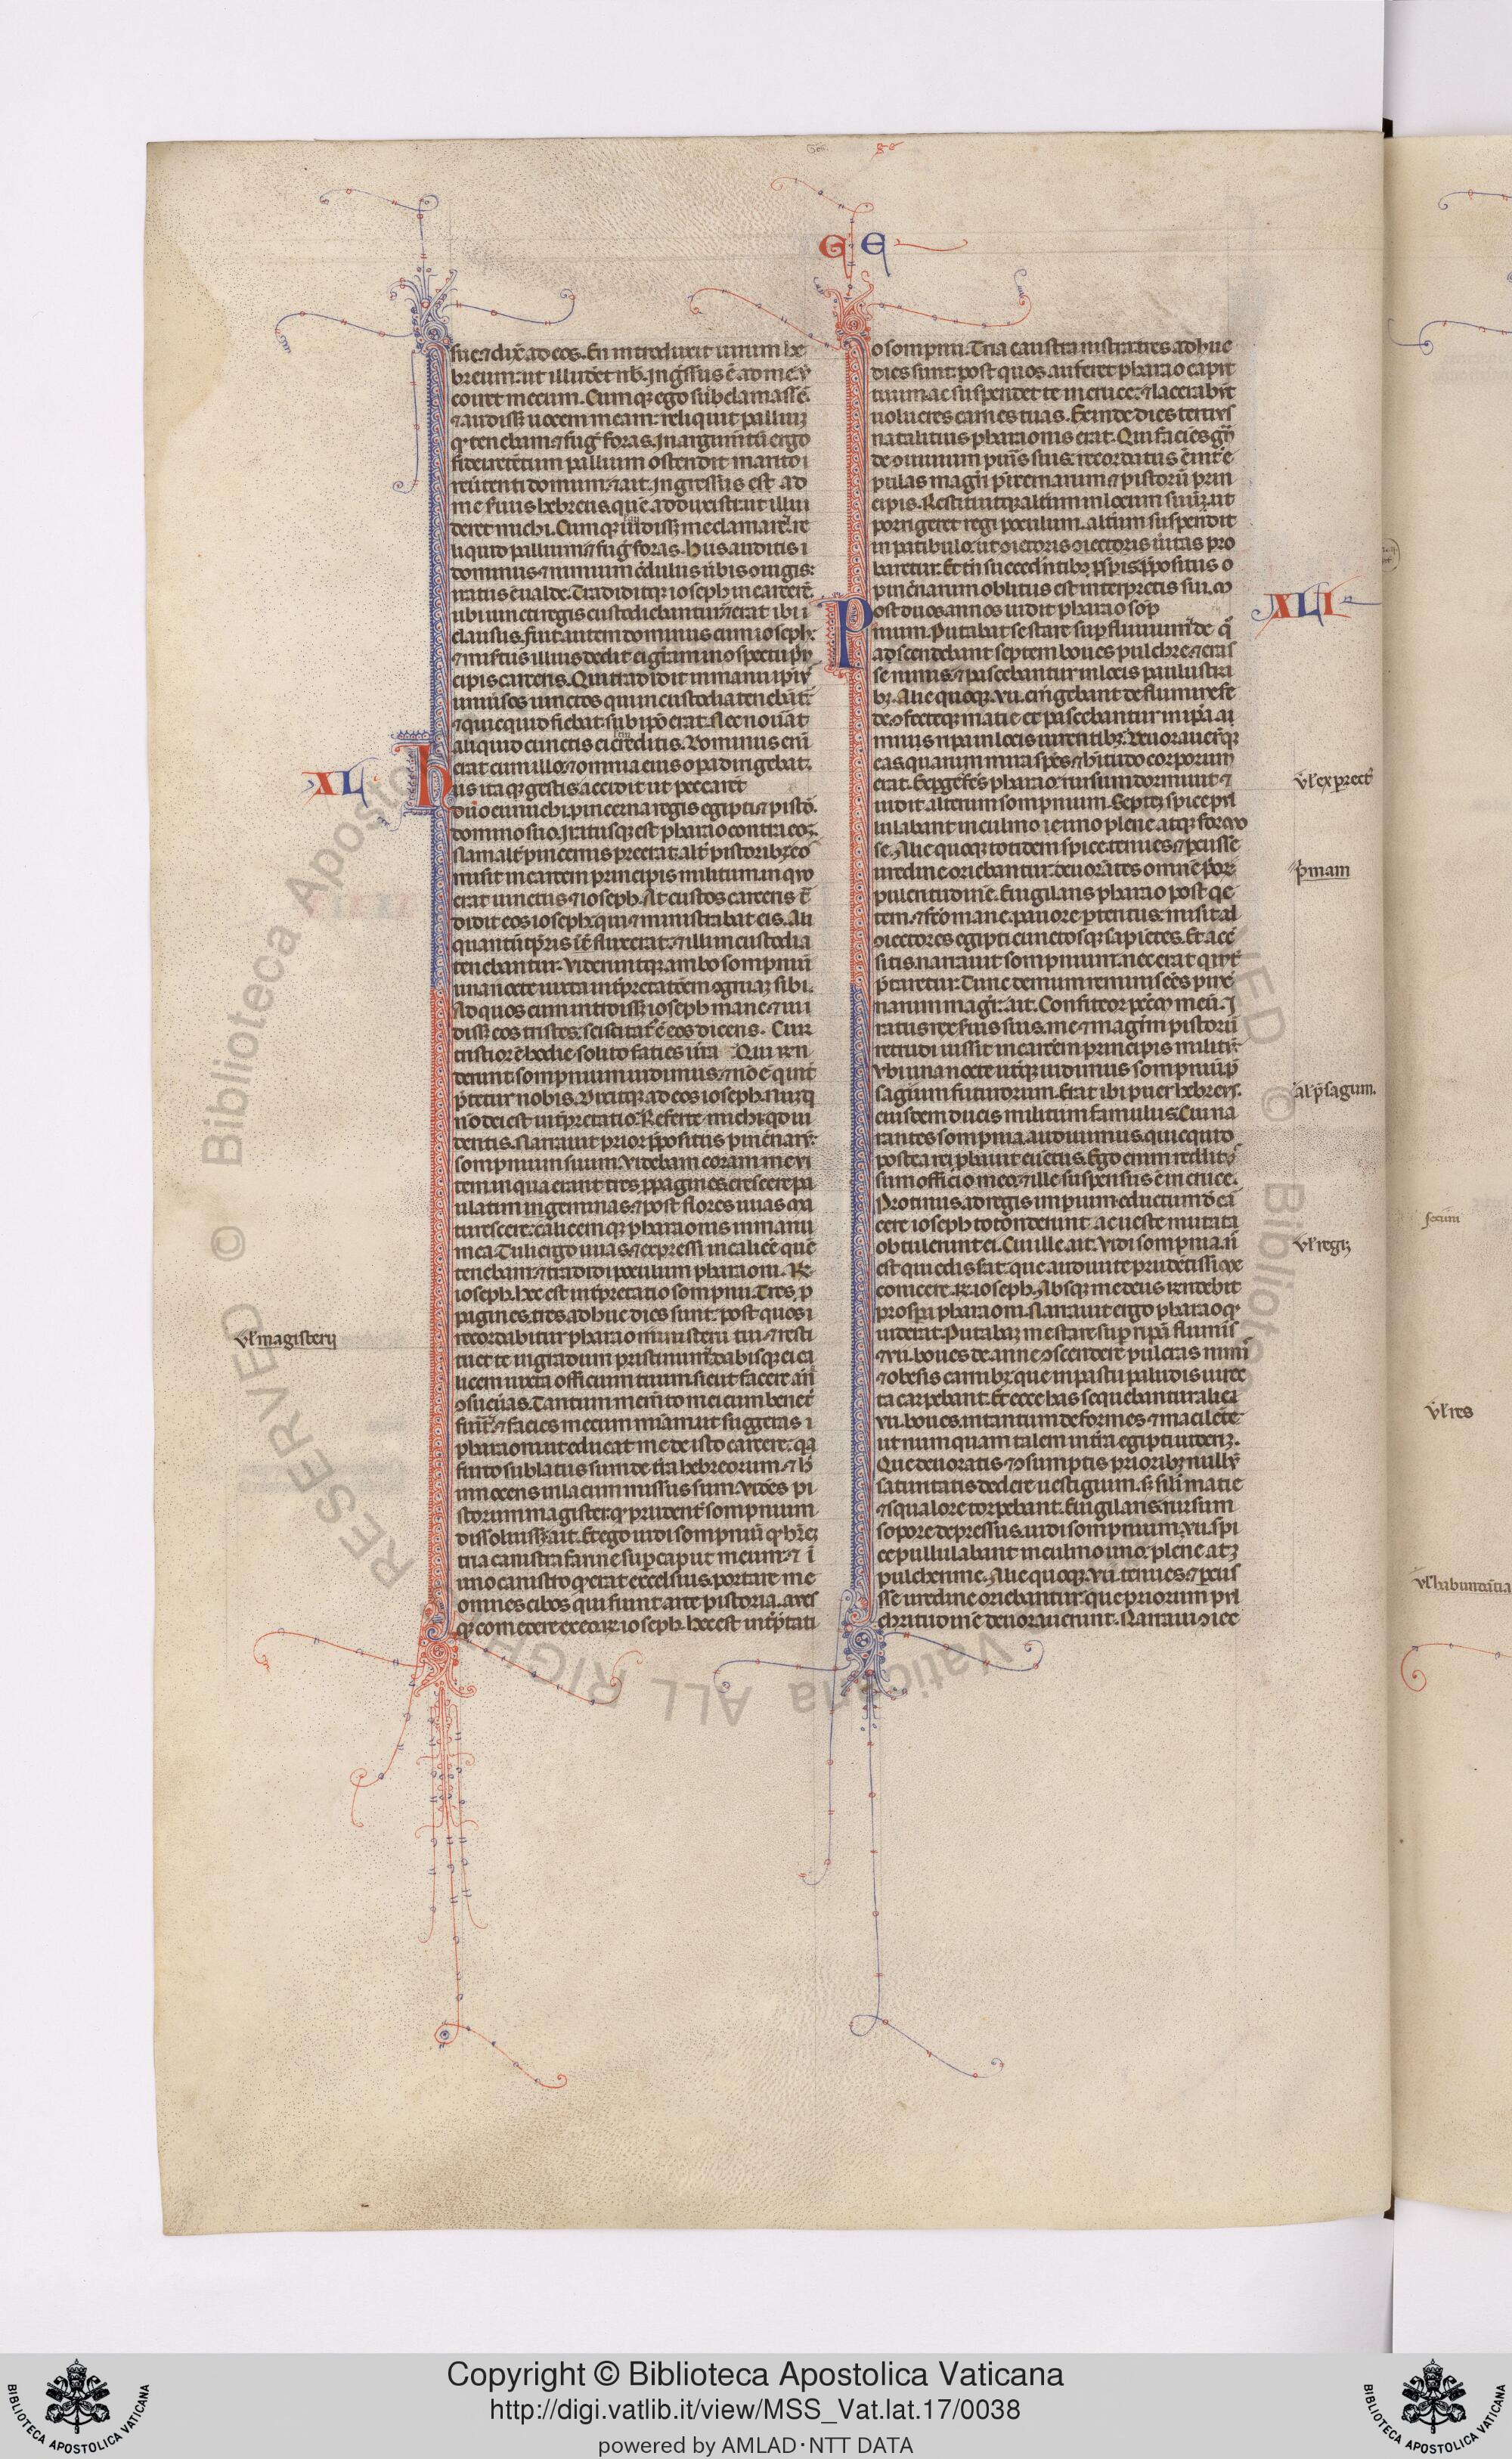 Gen.
GE
sue. ⁊ dix̄ ad eos. En introduxit uirum he
breum: ut illudet nƀ. Ingr̄ssus ē ad me: ut
coiret mecum. Cumq; ego succlamassē.
⁊ audiss; uocem meam: reliquit pallium
qđ tenebam. ⁊ fuḡ foras. In argum̄tū ergo
fidei retētum pallium ostendit marito
reūtenti domum. ⁊ ait. Ingressus est ad
me s̄uus hebreus. quē adduxisti: ut illu
deret michi. Cumq; uidiss; me clamare. re
liquit pallium ⁊ fuḡ foras. Hiis auditis
dominus. ⁊ nimium c̄dulus ūbis ɔiugis:
iratus ē ualde. Tradiditq; ioseph in carcerē.
ubi uincti regis custodiebantur. ⁊ erat ibi
clausus. Fuit autem dominus cum ioseph:
⁊ misertus illius dedit ei gr̄am in ɔspectu prin
cipis carceris. Qui tradidit in manu ip̄ius
uniūsos uinctos qui in custodia tenebāt᷑.
⁊ quicquid fiebat. sub ip̄o erat. Nec nouāt
aliquid cunctis ei creditis. Dominus eni᷑
erat cum illo. ⁊ omnia eius opa dirigebat.
XL
His itaq; gestis. accidit ut peccarēt
duo eunuchi. pincerna regis egipti ⁊ pistor
domino suo. Iratusq; est pharao contra eos.
Nam alt᷑ pincernis preerat. alt᷑ pistorib;. eos
misit in carcerem principis militum. in quo
erat uinctus ⁊ ioseph. At custos carceris t̄
didit eos ioseph. qui ⁊ ministrabat eis. Ali
quantū tp̄ris it᷑ fluxerat. ⁊ illi in custodia
tenebantur. Videruntq; ambo sompniū
una nocte iuxta int̄pretatōem ɔgruā sibi.
Ad quos cum introiss; ioseph mane. ⁊ ui
diss; eos tristes. sciscitat᷑ ē eos dicens. Cur
tristior ē hodie solito facies ura. Qui rn̄
derunt. sompnium uidimus. ⁊ nō ē qui int᷑
p̄tetur nobis. Dixitq; ad eos ioseph. Nunq̄
nō dei est int̄pretatio. Referte michi. qđ ui
deritis. Narrauit prior p̄positus pincernar᷑.
sompnium suum. Videbam coram me ui
tem. in qua erant tres ꝓpagines. crescere pa
ulatim in gemmas. ⁊ post flores uuas ma
turescere. calicemq; pharaonis in manu
mea. Tuli ergo uuas. ⁊ expressi in calicē quē
tenebam. ⁊ tradidi poculum pharaoni. R᷑
ioseph. hec est int̄pretatio sompnii. Tres ꝓ
pagines. tres adhuc dies sunt. post quos
recordabitur pharao ministerii tui. ⁊ resti
ul᷑ magisterij
tuet te in gradum pristinum. dabisq; ei ca
licem iuxta officium tuum. sicut facere an̄
ɔsueūas. Tantum mem̄to mei cum bene t᷑
fuīt. ⁊ facies mecum mīam. ut suggeras
pharaoni. ut educat me de isto carcere. q̄a
furto sublatus sum de t̄ra hebreorum. ⁊ h᷑
innocens in lacum missus sum. Vidēs pi
storum magister. qđ prudent᷑ sompnium
dissoluiss;. ait. Et ego uidi sompniū. qđ hr̄em
tria canistra farine sup caput meum. ⁊ in
uno canistro qđ erat excelsius. portare me
omnes cibos. qui fiunt arte pistoria. aues
q; comedere ex eo. R᷑ ioseph. hec est int̄p̄tati
o sompnii. Tria canistra nistra tres adhuc
dies sunt. post quos auferet pharao caput
tuum. ac suspendet te in cruce. ⁊ lacerabūt
uolucres carnes tuas. Exinde dies tertius
natalitius pharaonis erat. Qui faciēs gr̄n
de ɔuiuium pueris suis. recordatus ē int᷑ e
pulas magr̄i pincernarum. ⁊ pistorū prin
cipis. Restituitq; alt᷑um in locum suum. ut
porrigeret regi poculum. alt᷑um suspendit
in patibulo. ut ɔiectoris ɔiectoris ueritas pro
baretur. Et tn̄ succedentib; ꝓsp̄is. p̄positus
pincernarum oblitus est interpretis sui.
XLI
Post duos annos uidit pharao sōp
nium. Putabat se stare sup fluuium. de q̄
ascendebant septem boues pulchre. ⁊ cras
se nimis. ⁊ pascebantur in locis palustri
b;. Alie quoq;. vii. emergebant de flumine. fe
de ɔfecteq; macie. et pascebantur in ip̄a am
nis ripa in locis uirentib;. Deuorauerūtq;
eas. quarum mira sp̄es. ⁊ habitudo corporum
erat. Exp̄gefc̄s pharao. rursum dormiuit. ⁊
ul᷑ experrect᷑
uidit alterum sompnium. Septem spice pul
lulabant in culmo uno. plene atq; formo
se. Alie quoq; totidem spice tenues. ⁊ ꝑcusse
uredine oriebantur. deuorātes omnē por
p̄mam
pulcritudinē. Euigilans pharao post quie
tem. ⁊ fc̄o mane. pauore ꝑterritus. misit ad
ɔiectores egipti. cunctosq; sapiētes. Et acc̄
sitis narrauit sompnium. nec erat qui int᷑
p̄taretur. Tunc demum reminiscēs pincer
narum magr̄. ait. Confiteor pcc̄m meū. I
ratus rex s̄uis suis. me ⁊ magr̄m pistorū
retrudi iussit in carcērem principis militū.
Vbi una nocte ut᷑q; uidimus sompniū. p̄
sagium futurorum. Erat ibi puer hebreus.
al᷑ p̄sagum.
eiusdem ducis militum famulus. Cui na
rrantes sompnia. audiuimus quicquid
postea rei ꝓbauit euētus. Ego enim redditus
sum officio meo. ⁊ ille suspensus ē in cruce.
Protinus ad regis imp̄ium eductum de car
cere ioseph totōnderunt. ac ueste mutata
obtulerunt ei. Cui ille ait. Vidi sompnia. n̄
ul᷑ regi;
est qui edisserat. que audiui te prudētissime
conicere. R᷑ ioseph. Absq; me deus rn̄debit
prospa pharaoni. Narrauit ergo pharao qđ
uiderat. Putabam me stare sup ripā flumīs
⁊ vii. boues de amne ɔscendere. pulcras nimis
⁊ obesis carnib;. que in pastu paludis uirec
ta carpebant. Et ecce has sequebantur alie
vii. boues. in tantum deformes ⁊ macilēte.
ut numquam tales in t̄ra egipti uiderim.
Que deuoratis ⁊ ɔsumptis priorib;. nullum
saturitatis dedere uestigium. s; sil᷑i macie
⁊ squalore torpebant. Euigilans. rursum
sopore depressus. uidi sompnium. vii. spi
ce pullulabant in culmo uno. plene atq;
pulcherrime. Alie quoq;. vii. tenues. ⁊ ꝑcus
sse uredine oriebantur. que priorum pul
chritudinē deuorauerunt. Narraui ɔiec
secum
ul᷑ res
ul᷑ habundātia
RESERVED © Biblioteca Apostolica Vaticana ALL RIGHTS RESERVED © Biblioteca
Copyright © Biblioteca Apostolica Vaticana
http://digi.vatlib.it/view/MSS_Vat.lat.17/0038
powered by AMLAD·NTT DATA
BIBLIOTECA APOSTOLICA VATICANA
BIBLIOTECA APOSTOLICA VATICANA